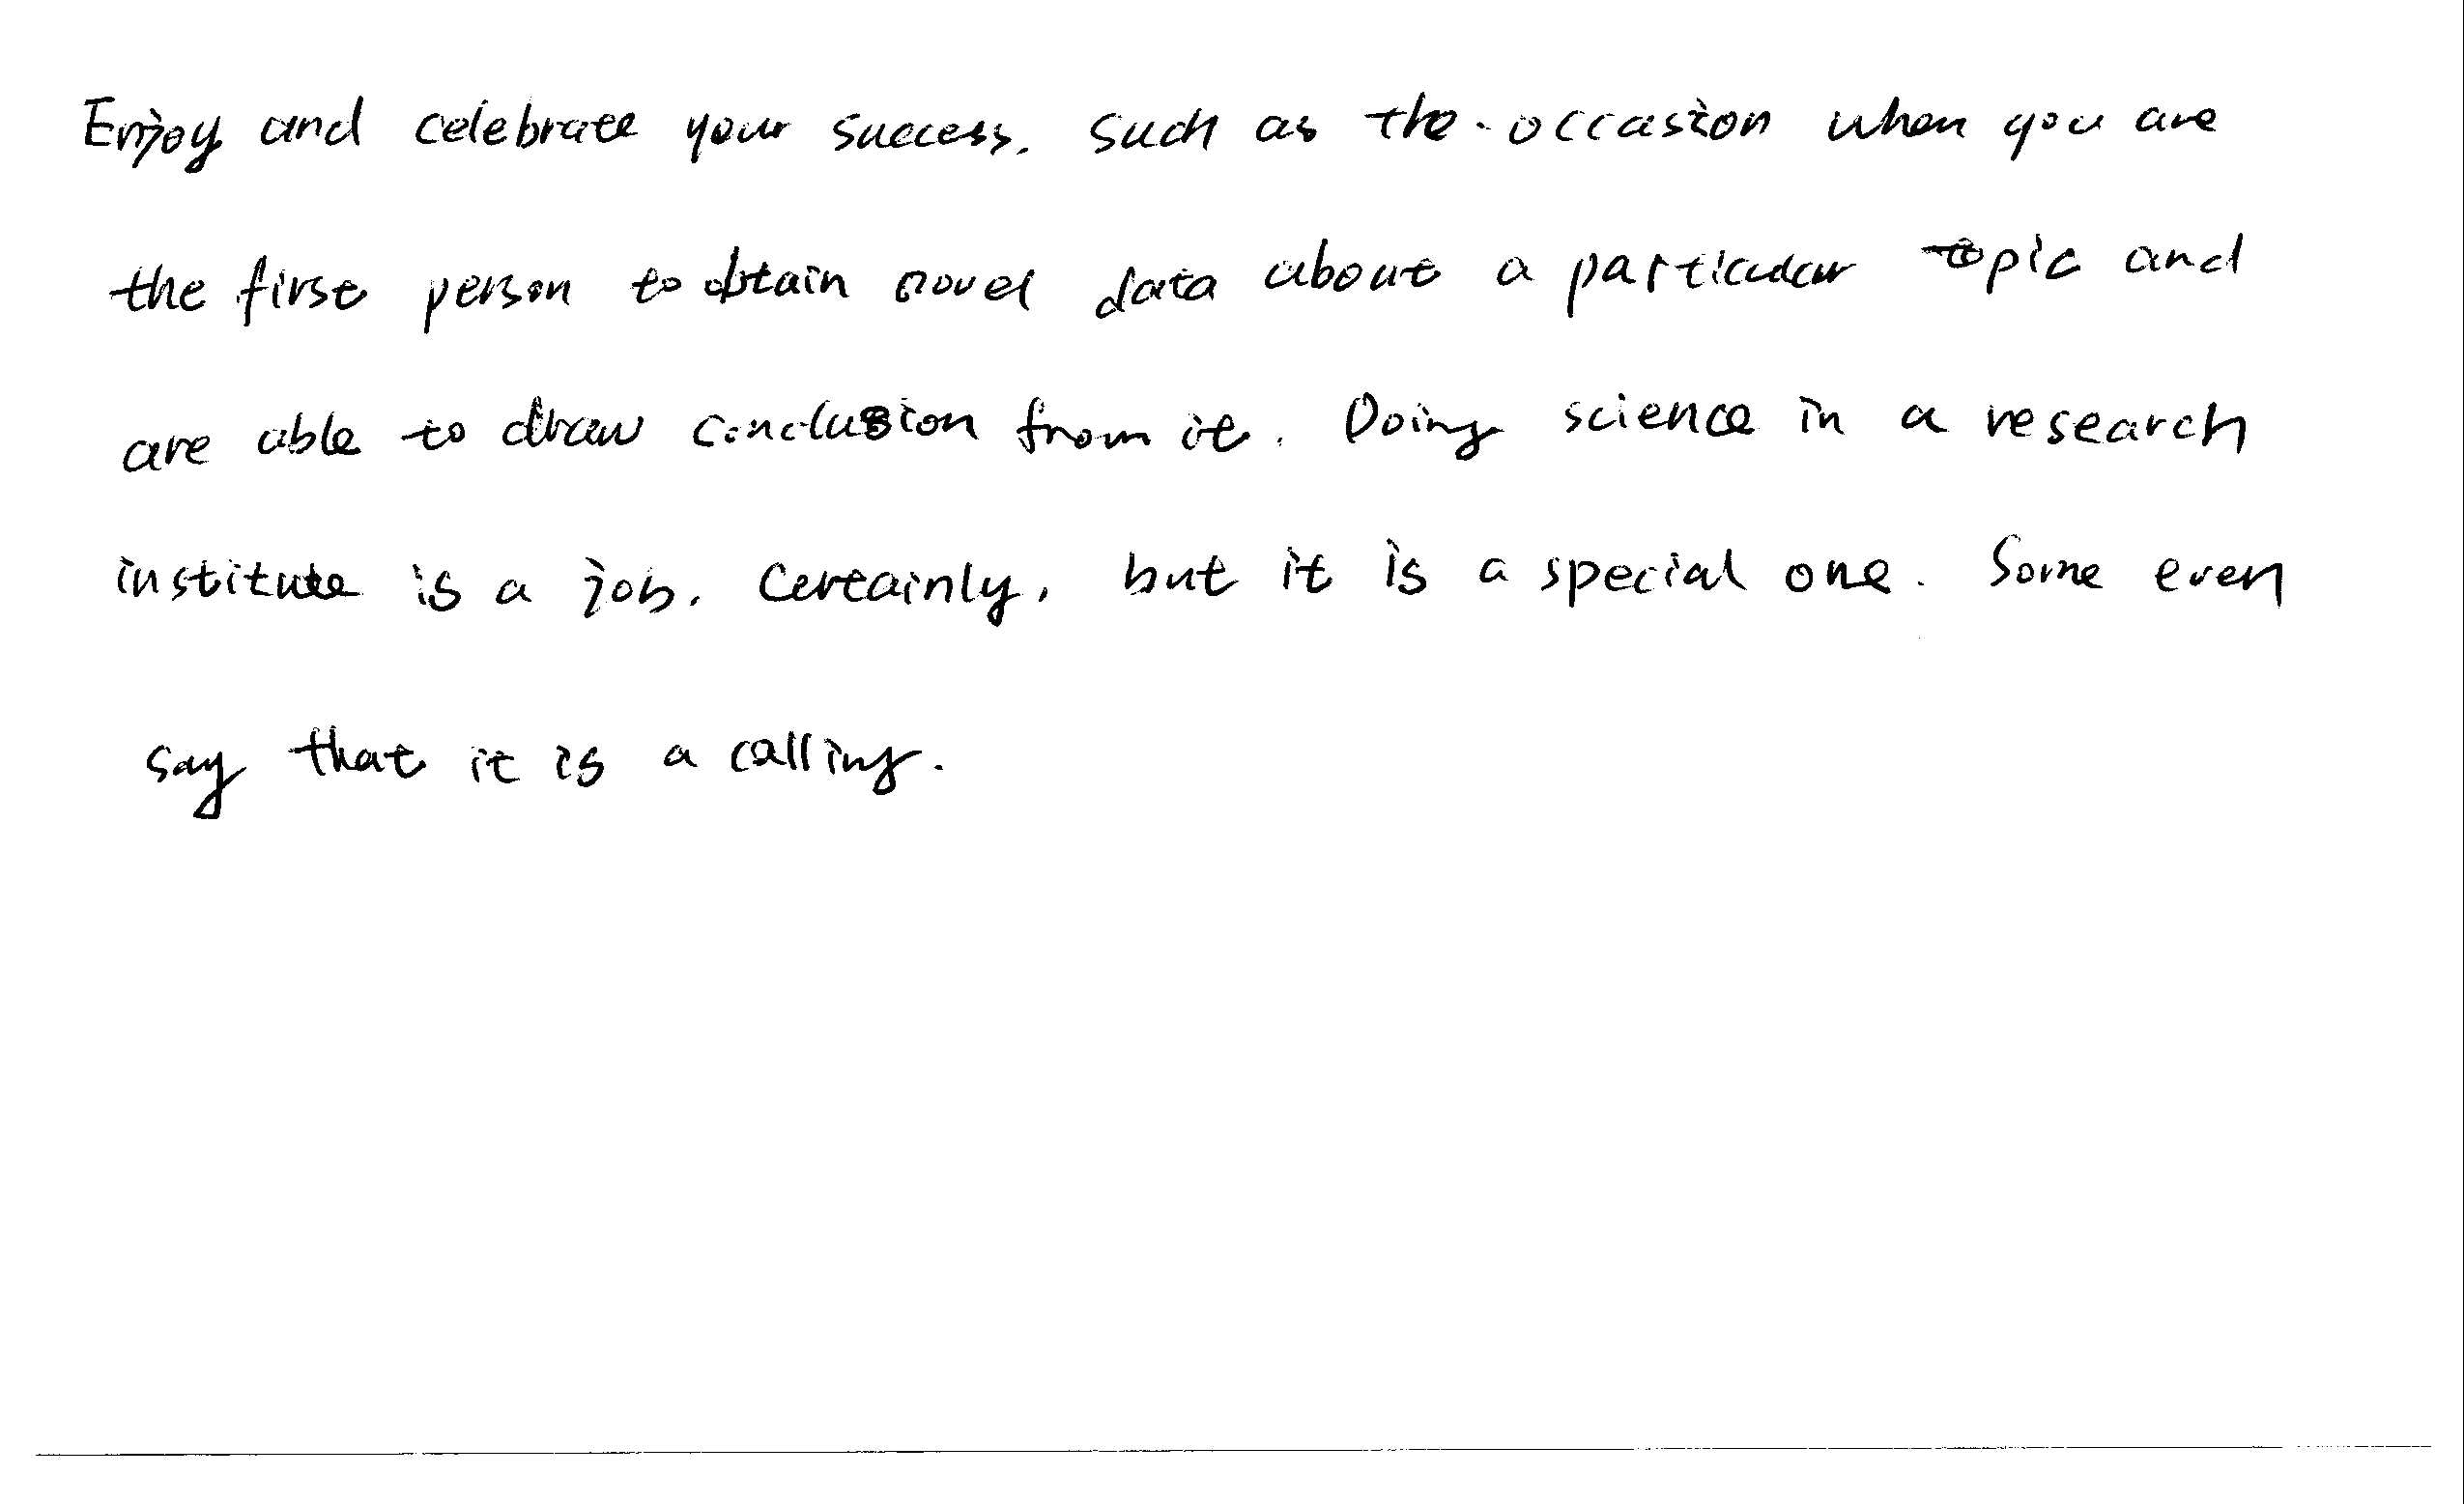 Enjoy and celebrate your success. such as the occasion when you are
the first person to obtain novel data about a particular topic and
are able to draw conclusion from it. Doing science in a research
institute is a job. Certainly, but it is a special one. Some even
say that it is a calling.